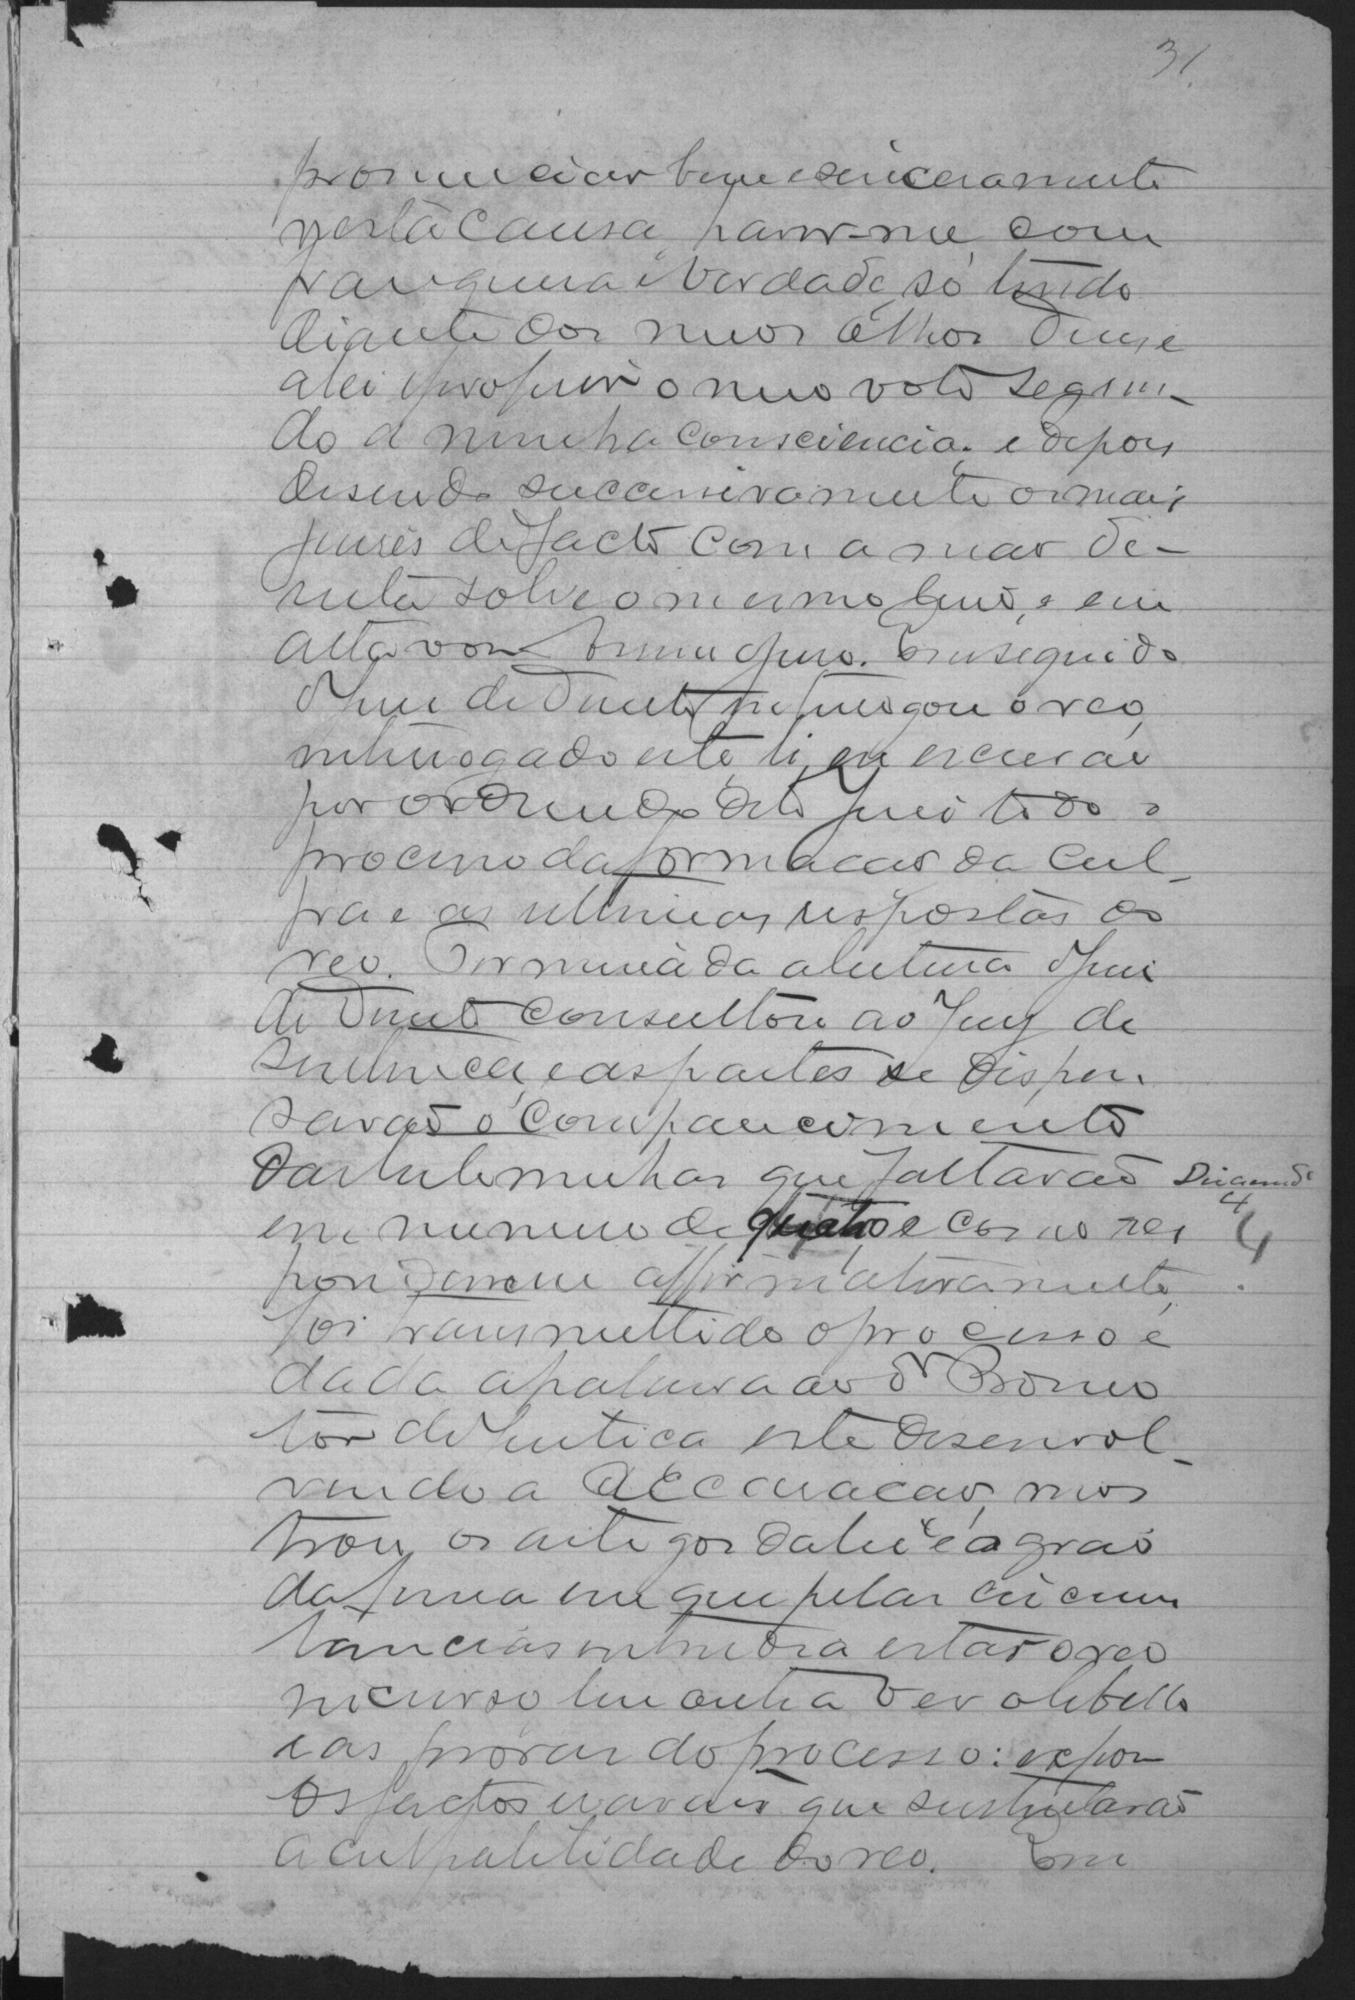 31.
pronunciar bem e sinceramente
nesta causa, haver-me com
franqueza e verdade, só tendo
diante dos meus olhos Deus e
a lei e proferir o meu voto segun-
do a minha consciencia; e depois
disendo successivamente os mais
juises de facto com a mão di-
reita sobre o mesmo livro, e em
alta voz assim o juro. Em seguida
o Juiz de Direito interrogou o reo,
interrogado este, li, eu escrivão
por ordem do dito Juiz todo o
processo da formacão da cul-
pa e as ultimas respostas do
reo. Terminada a leitura o Juiz
de Direito consultou ao Jury de
sentença, e as partes se dispen
savão o comparecimento
das testemunhas que faltarão Digo
em numero de quatro e como res 4
pondessem affirmativamente,
foi transmettido o processo e
dada a palavra ao Dr Promo
tor de Justica este desenvol-
vendo a accusacão, mos
trou os artigos da lei e o grao
da pena em que pelas circuns
tancias entendia estar o reo
incurso leu outra vez o libello
e as provas do processo: expoz
os factos e rasões que sustentavão
a culpabilidade do reo. Em